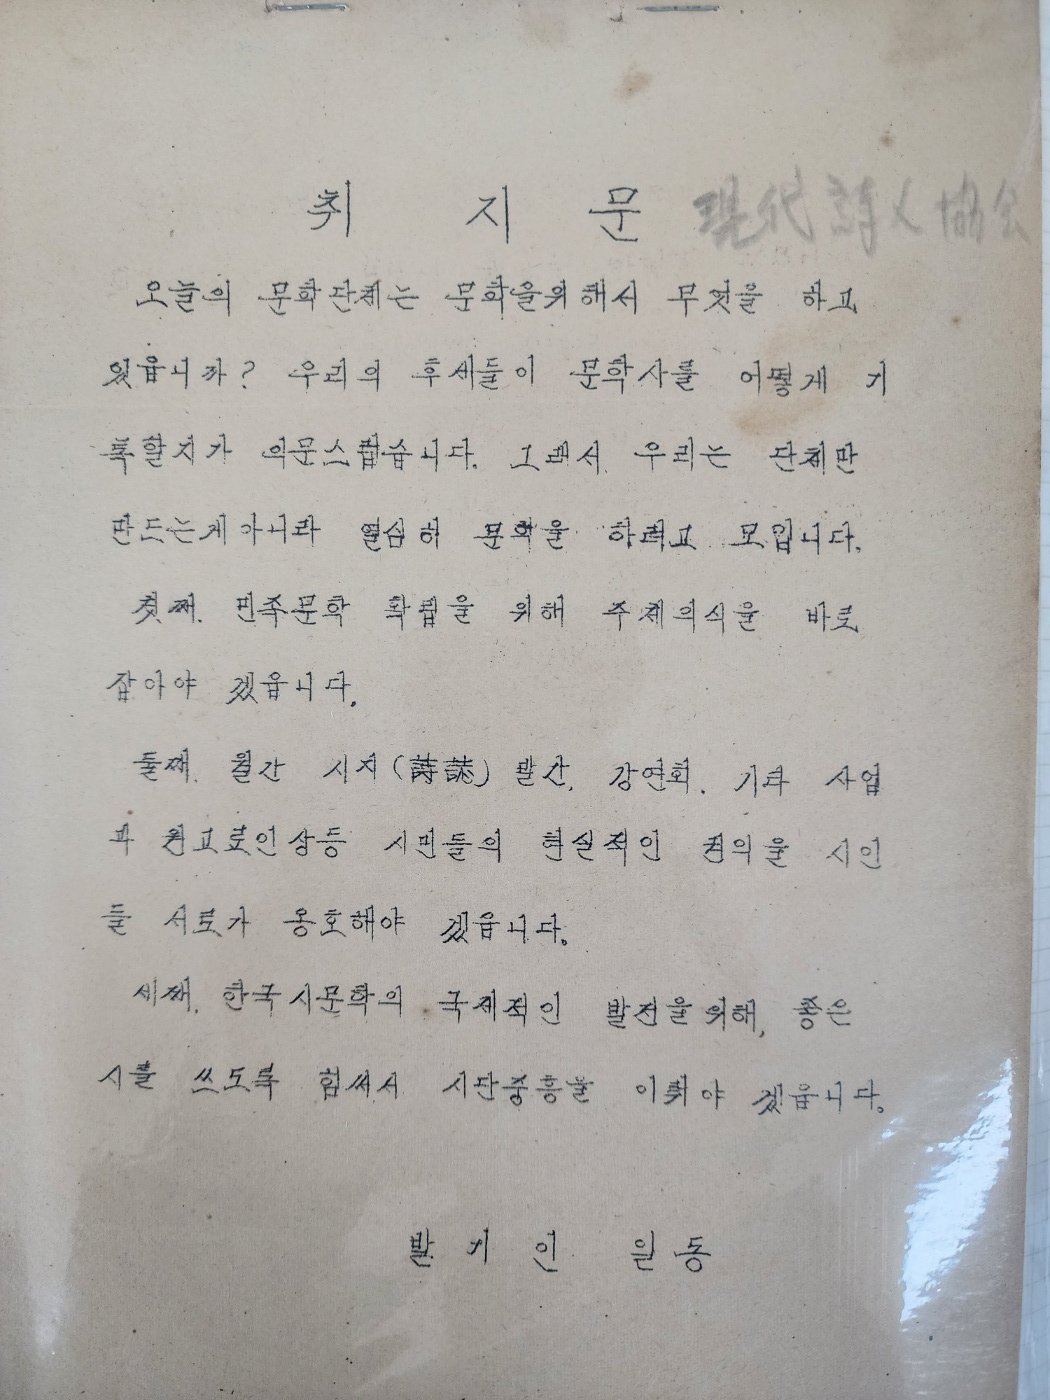 취 지 문 現代詩人協会
오늘의 문학단체는 문학을위해서 무엇을 하고
있읍니까? 우리의 후세들이 문학사를 어떻게 기
록할지가 의문스럽습니다. 그래서 우리는 단체만
만드는게아니라 열심히 문학을 하려고 모입니다.
첫째. 민족문학 확립을 위해 주체의식을 바로
잡아야 겠읍니다.
둘째. 월간 시지(詩誌) 발간, 강연회. 기타 사업
과 원고료인상등 시민들의 현실적인 권의을 시인
들 서로가 옹호해야 겠읍니다.
세째. 한국시문학의 국제적인 발전을위해, 좋은
시를 쓰도록 힘써서 시단중흥을 이뤄야 겠읍니다.
발 기 인 일 동